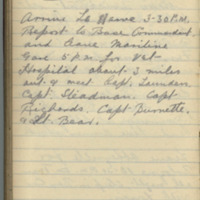 Arrive Le Havre 3-30 P.M.
Report to Base Commandant
and Gare Maritime
Gave 5 P.M. for Vet-
Hospital about 3 miles
out & meet Capt. Saunders
Capt. Steadman. Capt
Richards. Capt Burnette.
& Lt. Bear.